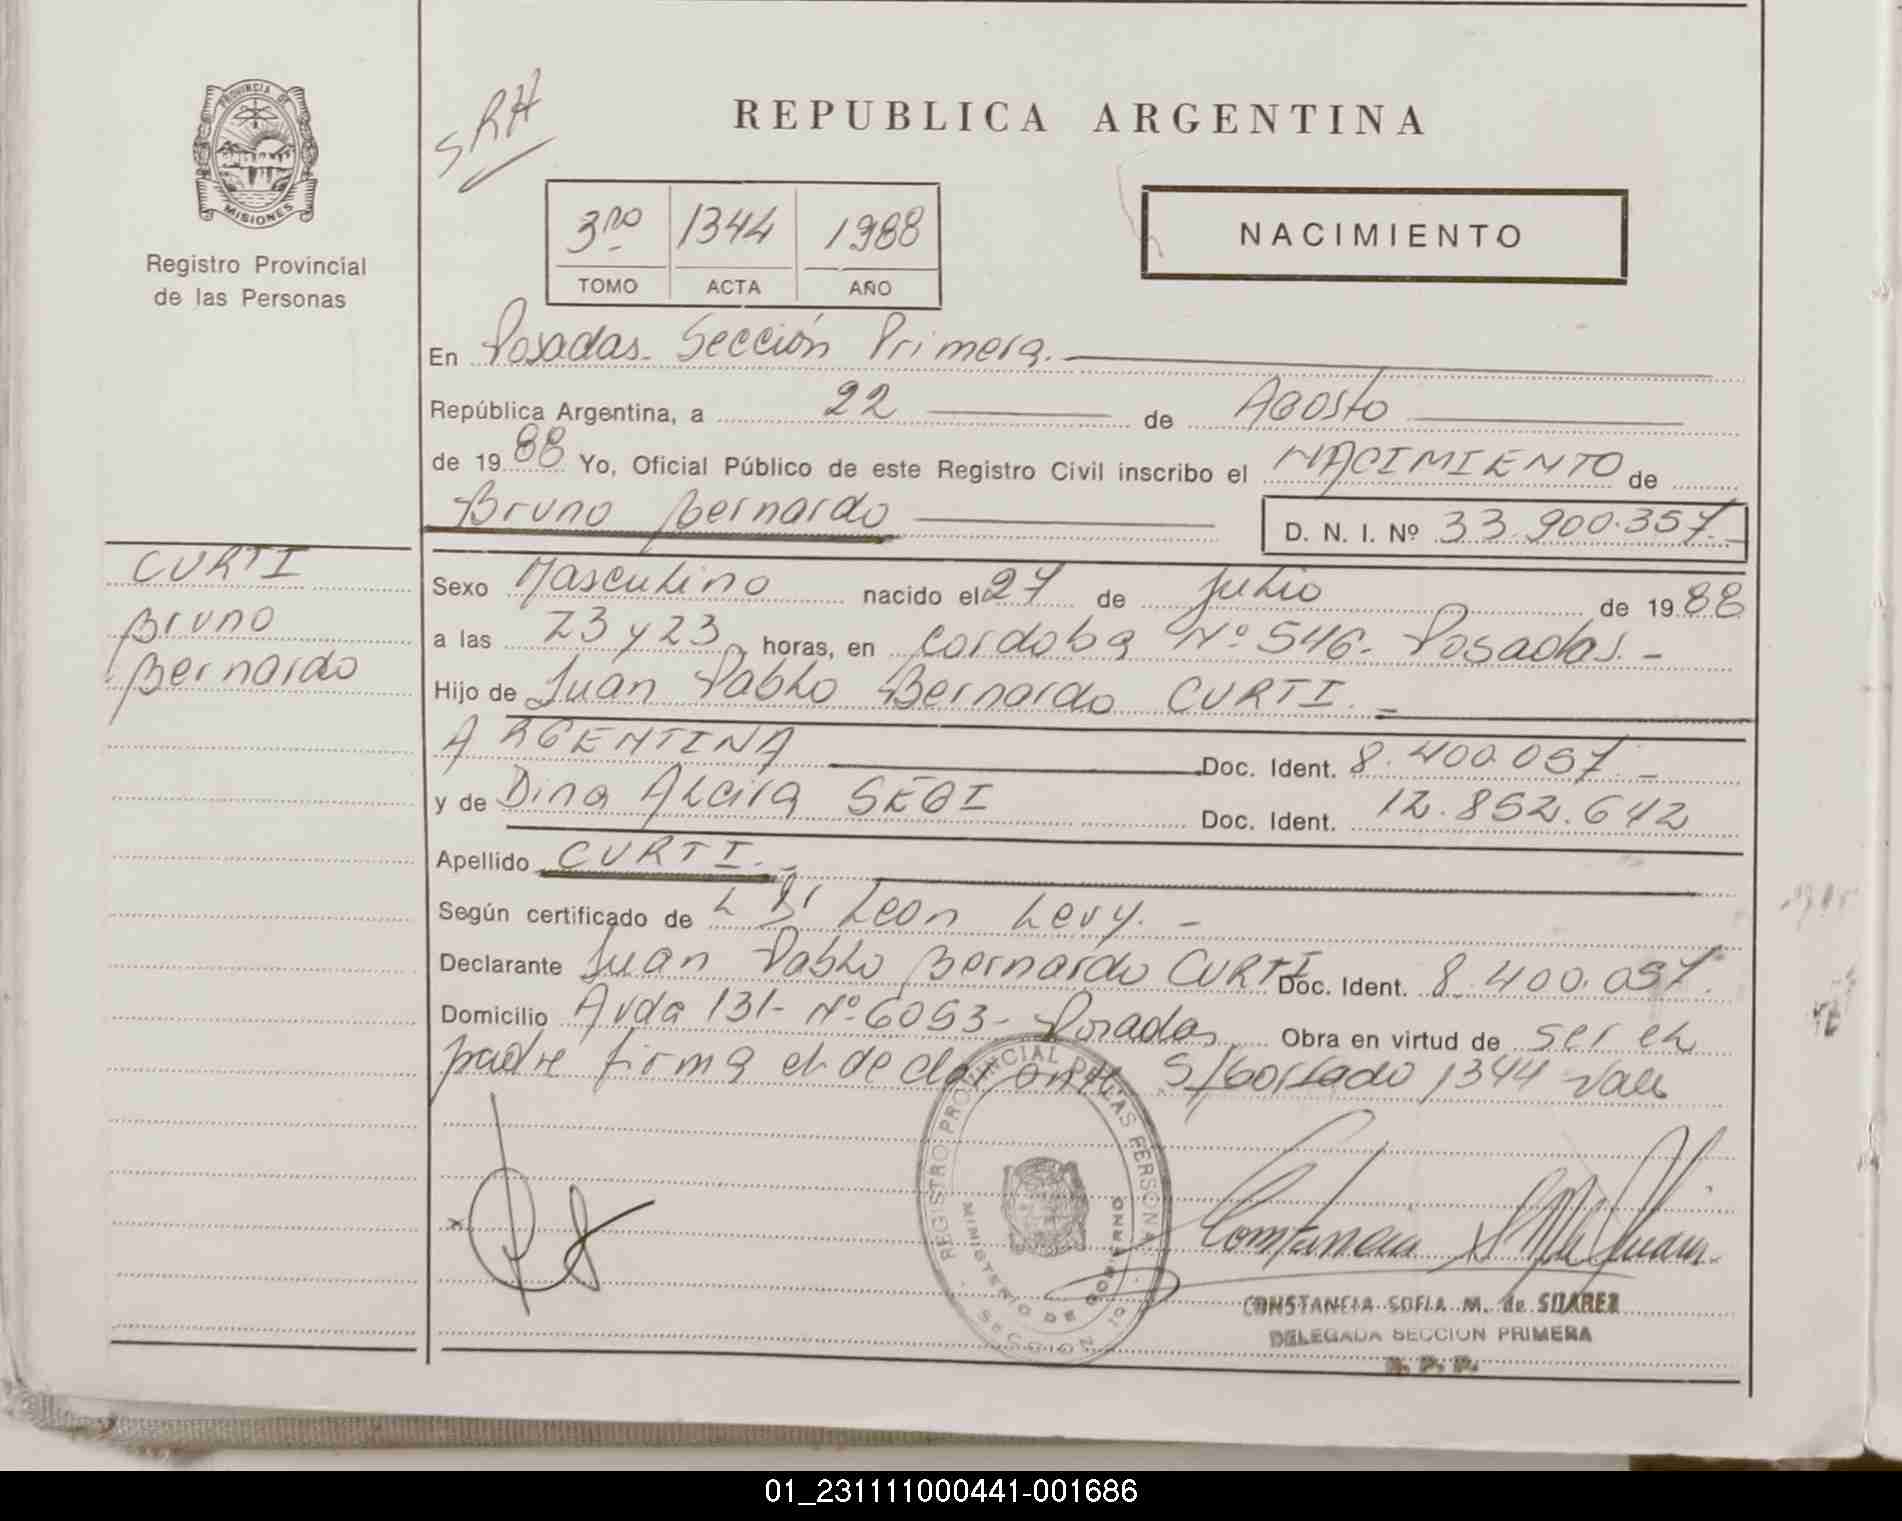 PROVINCIA DE
MISIONES
Registro Provincial
de las Personas
CURTI
Bruno
Bernardo
SRH
REPUBLICA ARGENTINA
3ro 1344 1988
TOMO ACTA AÑO
NACIMIENTO
En Posadas. Sección Primera.
República Argentina, a 22 de Agosto
de 1988 Yo, Oficial Público de este Registro Civil inscribo el NACIMIENTO de
Bruno Bernardo D. N. I. Nº 33.900.357.-
Sexo Masculino nacido el 27 de Julio de 1988
a las 23 y 23 horas, en Cordoba Nº 546. Posadas.-
Hijo de Juan Pablo Bernardo CURTI.-
ARGENTINA Doc. Ident. 8.400.057.-
y de Dina Alcira Doc. Ident. 12.852.642
Apellido CURTI.-
Según certificado de Leon Levy.-
Declarante Juan Pablo Bernardo CURTI Doc. Ident. 8.400.057.
Domicilio Avda 131- Nº 6053- Posadas Obra en virtud de ser el
padre firma el declarante S/borrado 1344 Vale
REGISTRO PROVINCIAL DE LAS PERSONAS
MINISTERIO DE GOBIERNO
SECCION 1º
CONSTANCIA SOFIA M. de SUAREZ
DELEGADA SECCION PRIMERA
R. P. P.
01_231111000441-001686